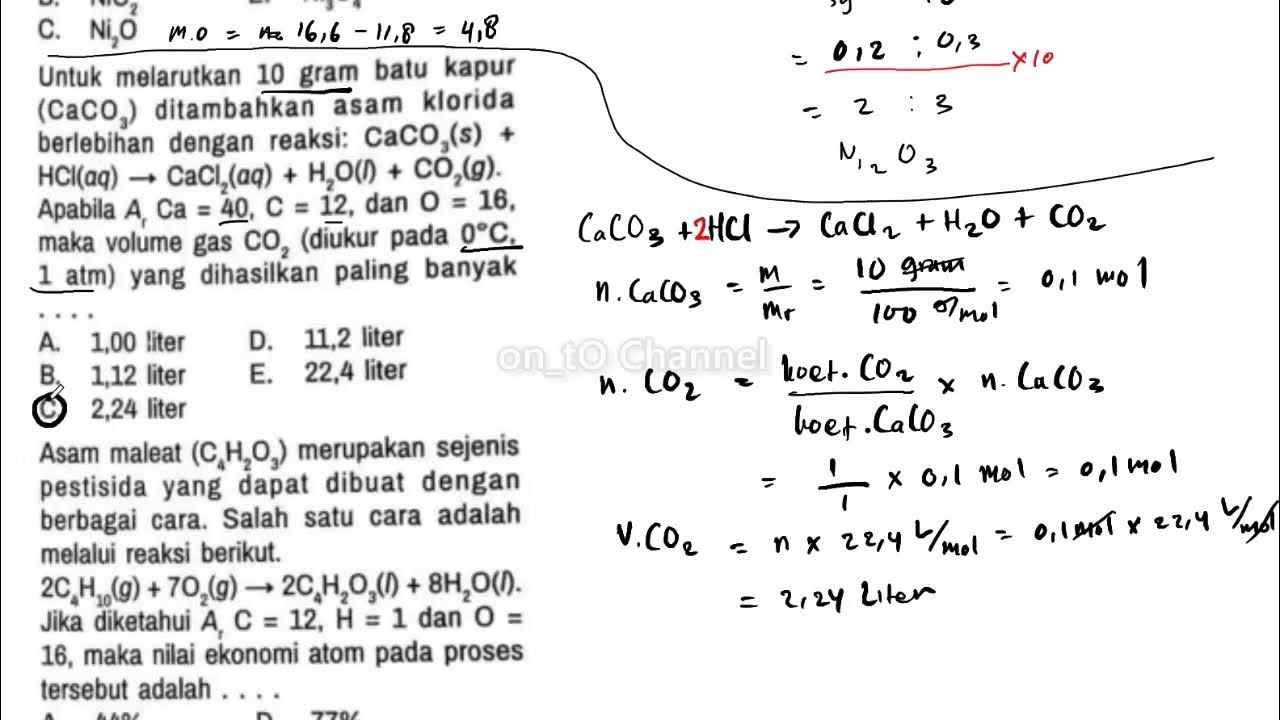 C. Ni₂O m.O = 16,6 – 11,8 = 4,8
Untuk melarutkan 10 gram batu kapur
(CaCO₃) ditambahkan asam klorida
berlebihan dengan reaksi: CaCO₃(s) +
HCl(aq) → CaCl₂(aq) + H₂O(l) + CO₂(g).
Apabila Aᵣ Ca = 40, C = 12, dan O = 16,
maka volume gas CO₂ (diukur pada 0°C,
1 atm) yang dihasilkan paling banyak
. . . .
A. 1,00 liter D. 11,2 liter
B. 1,12 liter E. 22,4 liter
C 2,24 liter
Asam maleat (C₄H₂O₃) merupakan sejenis
pestisida yang dapat dibuat dengan
berbagai cara. Salah satu cara adalah
melalui reaksi berikut.
2C₄H₁₀(g) + 7O₂(g) → 2C₄H₂O₃(l) + 8H₂O(l).
Jika diketahui Aᵣ C = 12, H = 1 dan O =
16, maka nilai ekonomi atom pada proses
tersebut adalah . . . .
= 0,2 : 0,3 ×10
= 2 : 3
Ni₂O₃
CaCO₃ + 2HCl → CaCl₂ + H₂O + CO₂
n. CaCO₃ = m/mr = 10 gram/100 g/mol = 0,1 mol
on_tO Channel
n. CO₂ = koef. CO₂/koef. CaCO₃ × n. CaCO₃
= 1/1 × 0,1 mol = 0,1 mol
V. CO₂ = n × 22,4 L/mol = 0,1 mol × 22,4 L/mol
= 2,24 Liter